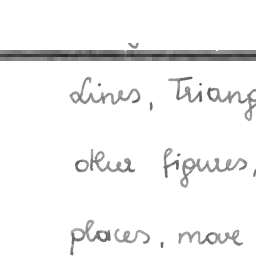 Lines, Triang
other figures,
places, move